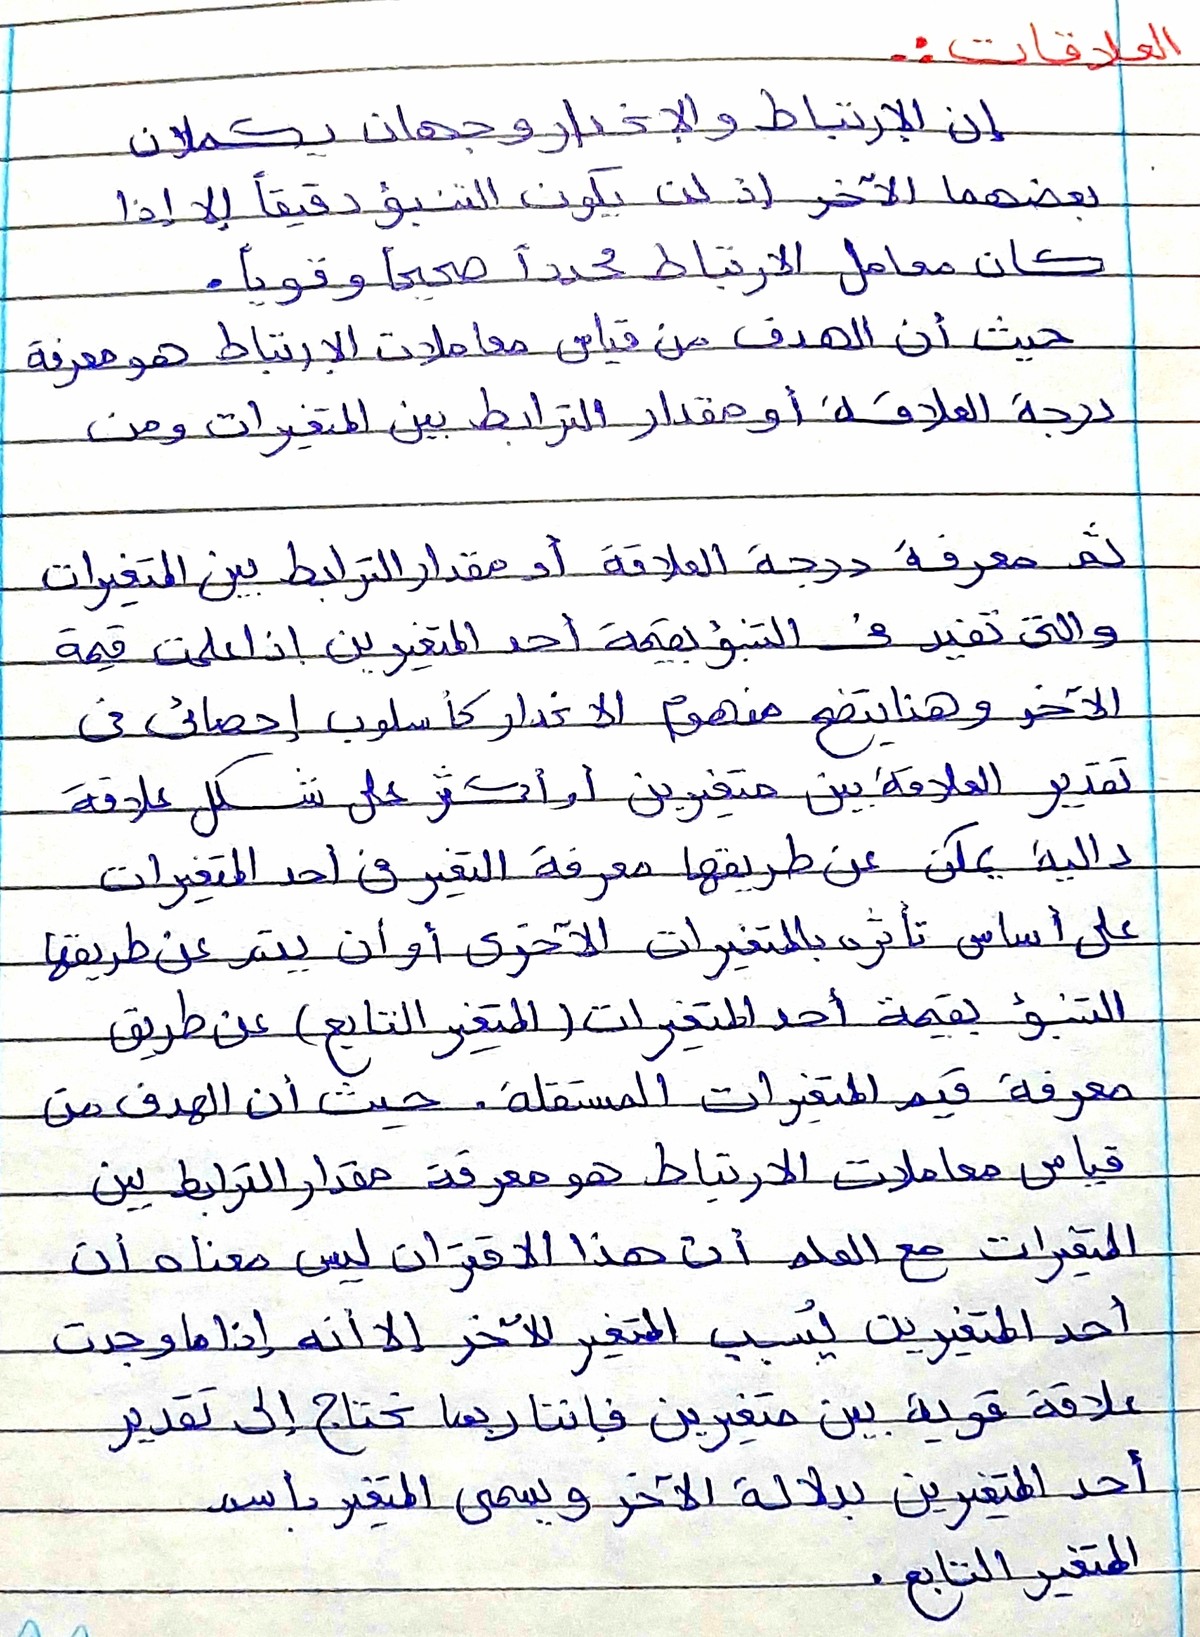 العلاقات :.
إن الإرتباط والإنحدار وجهان يكملان
بعضهما الآخر إذ لن يكون التنبؤ دقيقاً إلا إذا
كان معامل الارتباط محدداً صحيحاً وقوياً .
حيث أن الهدف من قياس معاملات الإرتباط هو معرفة
درجة العلاقة أو مقدار الترابط بين المتغيرات ومن
ثم معرفة درجة العلاقة أو مقدار الترابط بين المتغيرات
والتى تفيد فى التنبؤ بقيمة أحد المتغيرين إذا علمت قيمة
الآخر وهنا يتضح مفهوم الانحدار كأسلوب إحصائى فى
تقدير العلاقة بين متغيرين أو أكثر على شكل علاقة
دالية يمكن عن طريقها معرفة التغير فى أحد المتغيرات
على أساس تأثره بالمتغيرات الآخرى أو أن يتم عن طريقها
التنبؤ بقيمة أحد المتغيرات (المتغير التابع) عن طريق
معرفة قيم المتغيرات المستقلة . حيث أن الهدف من
قياس معاملات الارتباط هو معرفة مقدار الترابط بين
المتغيرات مع العلم أن هذا الاقتران ليس معناه أن
أحد المتغيرين يُسبب المتغير الآخر إلا أنه إذا ما وجدت
علاقة قوية بين متغيرين فإننا ربما نحتاج إلى تقدير
أحد المتغيرين بدلالة الآخر ويسمى المتغير باسم
المتغير التابع .